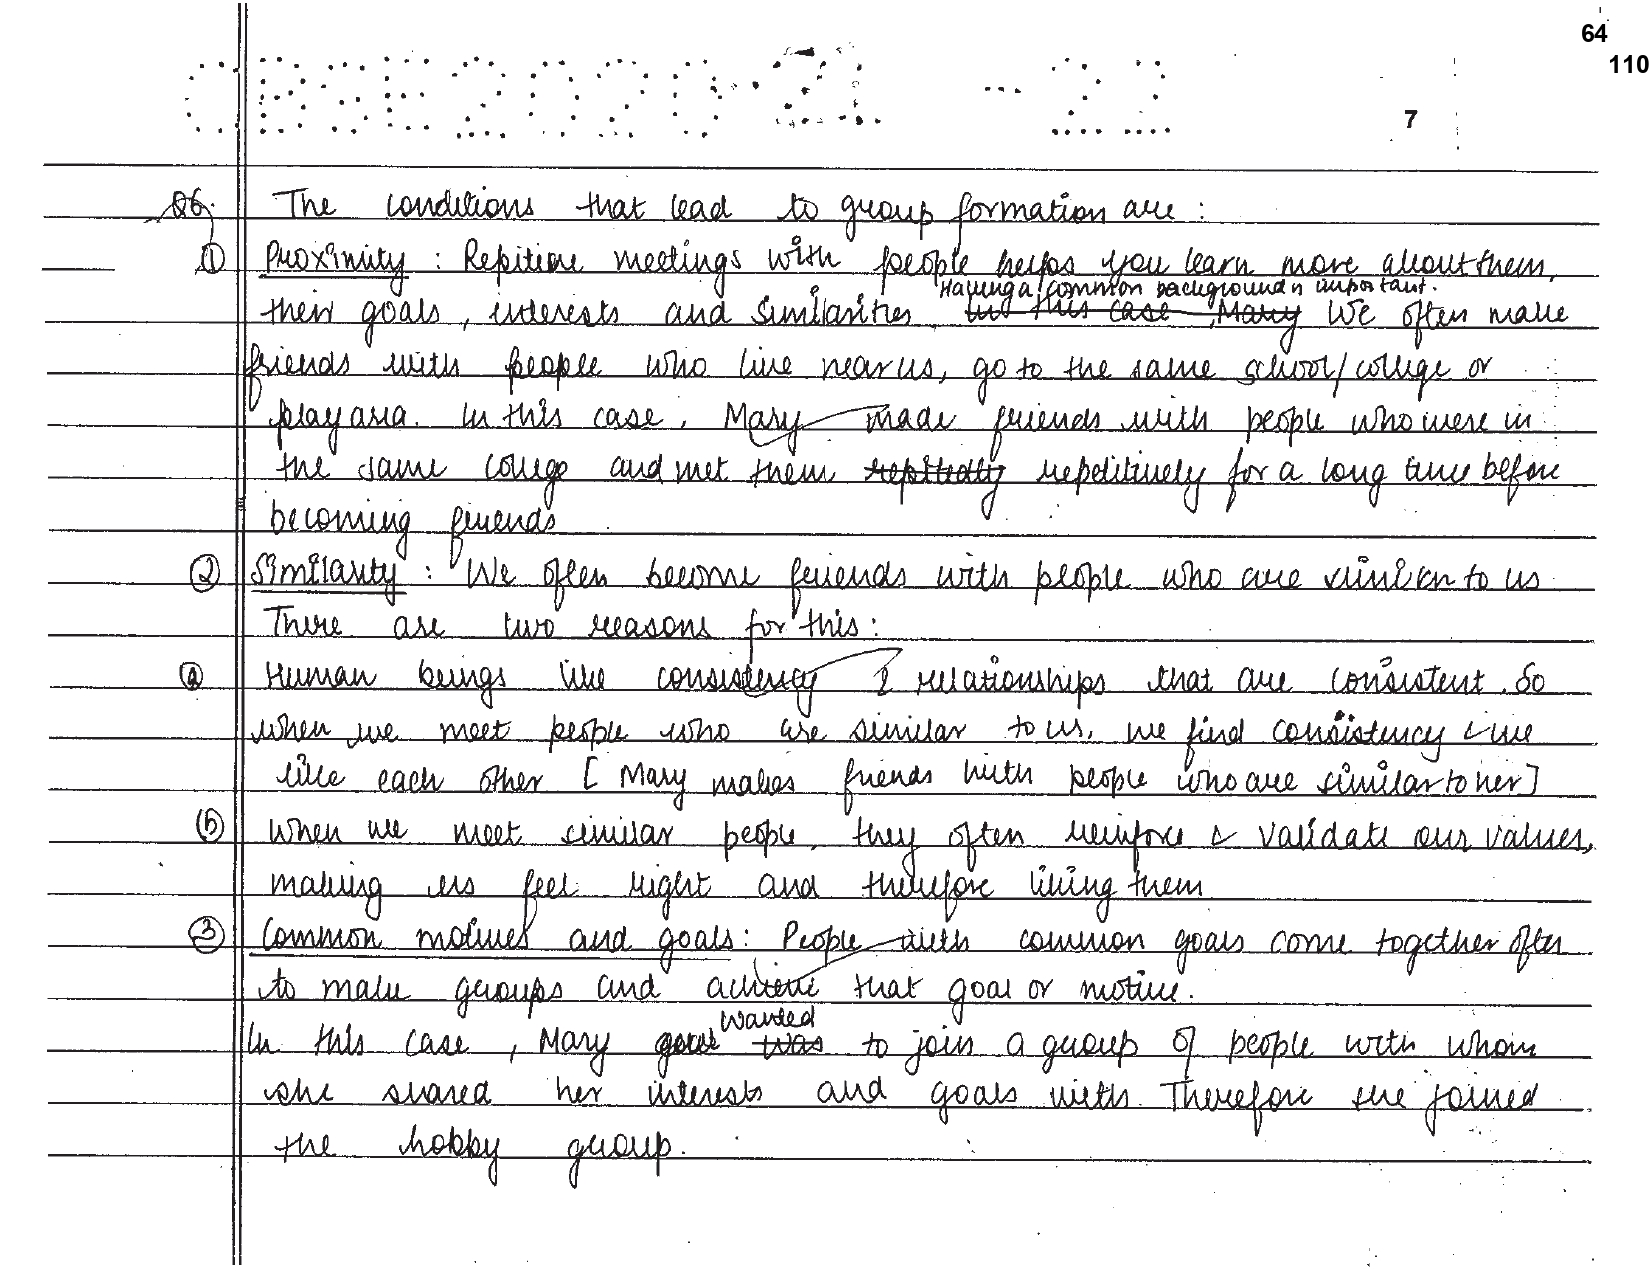 64
110
CBSE2020-21 -22
7
Q6. The conditions that lead to group formation are :
① Proximity : Repitive meetings with people helps you learn more about them,
Having a common background is important.
their goals, interests and similarities. In this case, Mary We often make
friends with people who live near us, go to the same school/college or
play area. In this case, Mary made friends with people who were in
the same college and met them repitedly repetitively for a long time before
becoming friends
② Similarity : We often become friends with people who are similar to us
There are two reasons for this :
ⓐ Human beings like consistency & relationships that are consistent. So
when we meet people who are similar to us, we find consistency & we
like each other [ Mary makes friends with people who are similar to her ]
ⓑ When we meet similar people, they often reinforce & validate our values,
making us feel right and therefore liking them
③ Common motives and goals : People with common goals come together often
to make groups and achieve that goal or motive.
wanted
In this case, Mary was to join a group of people with whom
she shared her interests and goals with. Therefore she joined
the hobby group.